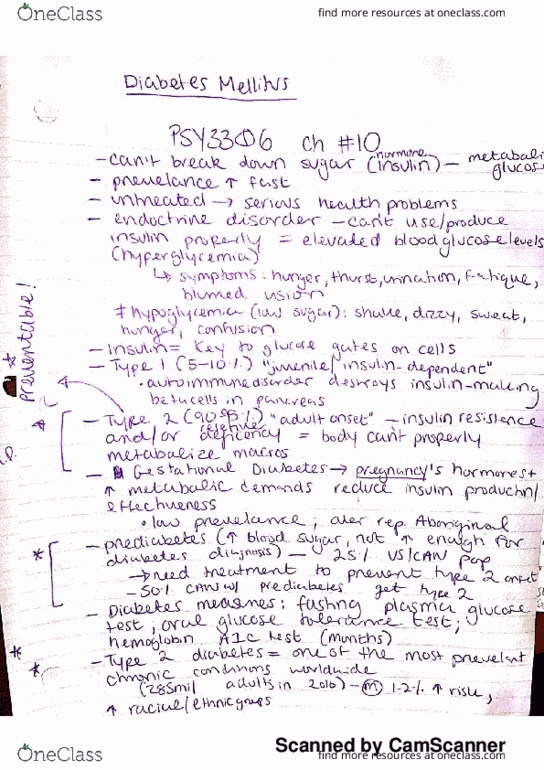 OneClass
find more resources at oneclass.com
Diabetes Mellitus
PSY33006 ch #10
hormone
-can't break down sugar (insulin) - metaboli
glucose
- prevelance ↑ fast
- untreated → serious health problems
- endoctrine disorder -can't use/produce
insulin properly = elevated blood glucose levels
(hyperglycemia)
↳ symptoms: hunger, thirst, urination, fatique,
blurred vision
≠ hypoglycemia (low sugar): shake, dizzy, sweat,
hunger, confusion
* preventable!
- Insulin = key to glucose gates on cells
- Type 1 (5-10%) "juvenile/insulin-dependent"
• autoimmune disorder destroys insulin-making
beta cells in pancreas
- Type 2 (90-95%) "adult onset" - insulin resistance
relative
and/or deficency = body can't properly
metabolize macros
- Gestational Diabetes → pregnancy's hormones +
↑ metabolic demands reduce insulin productn/
effectiveness
• low prevelance, over rep Aboriginal
* - prediabetes (↑ blood sugar, not ↑ enough for
diabetes diagnosis) - 25% US/CAN pop
→ need treatment to prevent type 2 onset
- 50% CANs w/ prediabetes get type 2
- Diabetes measures: fasting plasma glucose
test, oral glucose tolerance test;
hemoglobin A1C test (months)
* - Type 2 diabetes = one of the most prevelant
* chronic conditions worldwide
(285mil adults in 2010) - M 1-2% ↑ risk,
↑ racial/ethnic groups
Scanned by CamScanner
OneClass
find more resources at oneclass.com